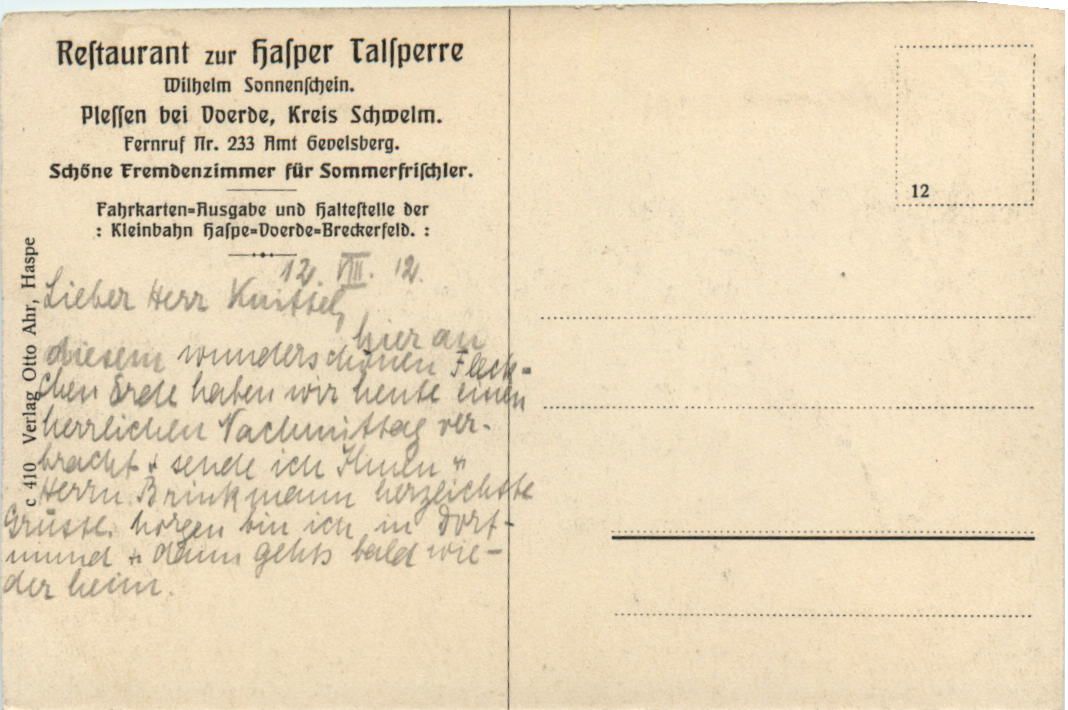 Restaurant zur Hasper Talsperre
Wilhelm Sonnenschein.
Plessen bei Voerde, Kreis Schwelm.
Fernruf Nr. 233 Amt Gevelsberg.
Schöne Fremdenzimmer für Sommerfrischler.
Fahrkarten=Ausgabe und Haltestelle der
: Kleinbahn Haspe=Voerde=Breckerfeld. :
12. VIII. 12.
Lieber Herr Knittel,
hier an
diesem wunderschönen Fleck-
chen Erde haben wir heute einen
herrlichen Nachmittag ver-
bracht + sende ich Ihnen u
Herrn Brinkmann herzlichste
Grüsse. Morgen bin ich in Dort-
mund + dann gehts bald wie-
der heim.
c 410 Verlag Otto Ahr, Haspe
12